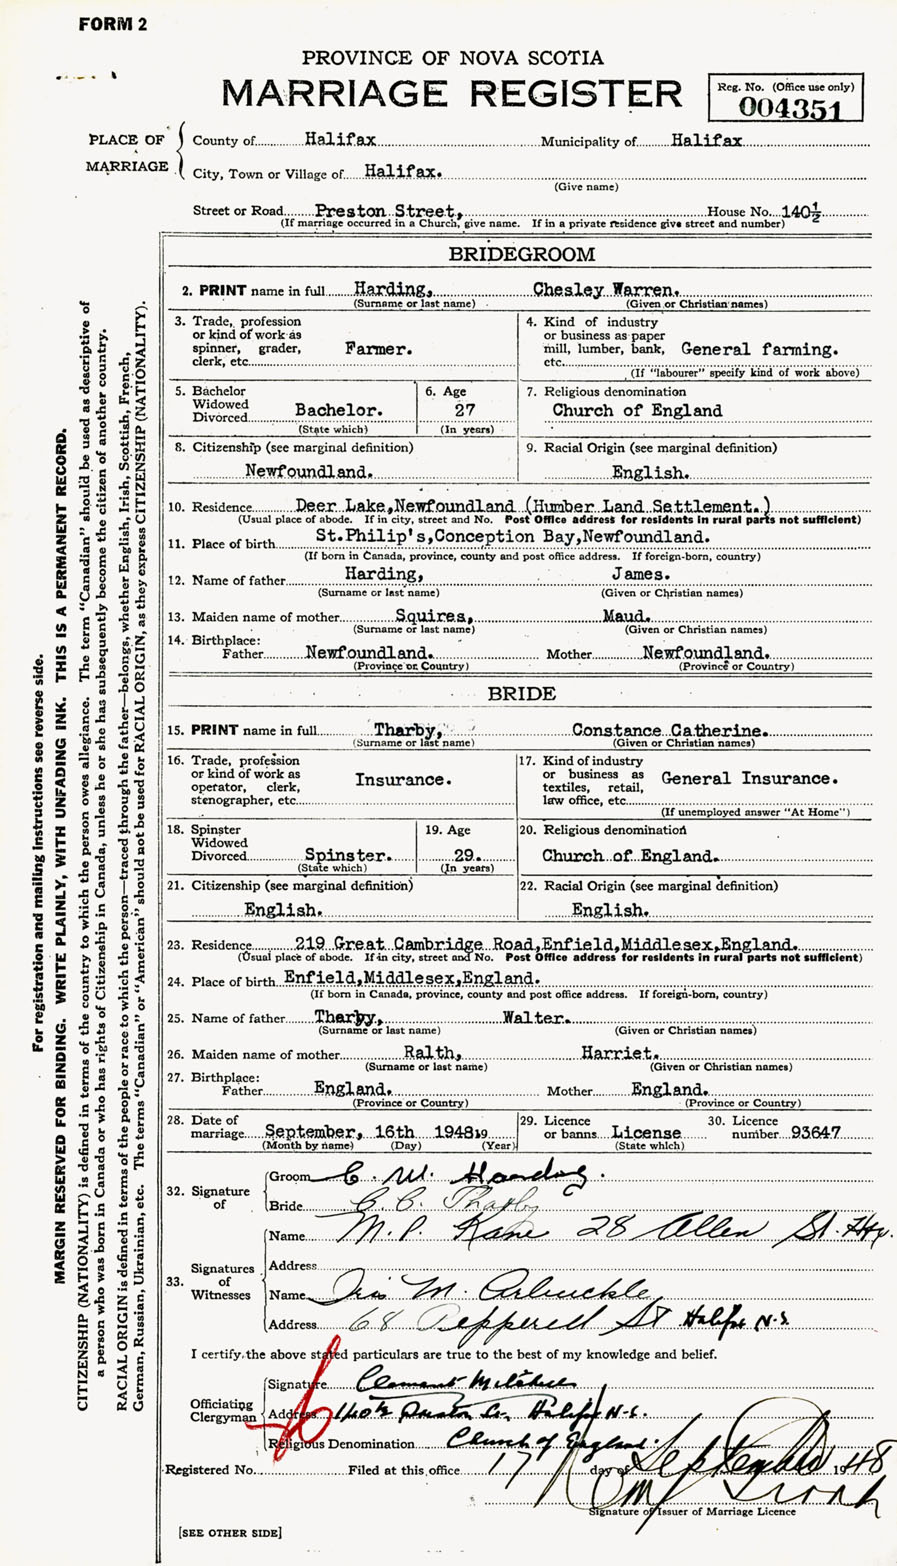 FORM 2
PROVINCE OF NOVA SCOTIA
MARRIAGE REGISTER
Reg. No. (Office use only)
004351
PLACE OF MARRIAGE
County of Halifax Municipality of Halifax
City, Town or Village of Halifax.
(Give name)
Street or Road Preston Street, House No. 140½
(If marriage occurred in a Church, give name. If in a private residence give street and number)
BRIDEGROOM
2. PRINT name in full Harding, Chesley Warren.
(Surname or last name) (Given or Christian names)
3. Trade, profession or kind of work as spinner, grader, clerk, etc. Farmer.
4. Kind of industry or business as paper mill, lumber, bank, etc. General farming.
(If "labourer" specify kind of work above)
5. Bachelor Widowed Divorced Bachelor.
(State which)
6. Age 27
(In years)
7. Religious denomination
Church of England
8. Citizenship (see marginal definition)
Newfoundland.
9. Racial Origin (see marginal definition)
English.
10. Residence Deer Lake,Newfoundland (Humber Land Settlement.)
(Usual place of abode. If in city, street and No. Post Office address for residents in rural parts not sufficient)
11. Place of birth St.Philip's,Conception Bay,Newfoundland.
(If born in Canada, province, county and post office address. If foreign-born, country)
12. Name of father Harding, James.
(Surname or last name) (Given or Christian names)
13. Maiden name of mother Squires, Maud.
(Surname or last name) (Given or Christian names)
14. Birthplace:
Father Newfoundland. Mother Newfoundland.
(Province or Country) (Province or Country)
BRIDE
15. PRINT name in full Tharby, Constance Catherine.
(Surname or last name) (Given or Christian names)
16. Trade, profession or kind of work as operator, clerk, stenographer, etc. Insurance.
17. Kind of industry or business as textiles, retail, law office, etc. General Insurance.
(If unemployed answer "At Home")
18. Spinster Widowed Divorced Spinster.
(State which)
19. Age 29.
(In years)
20. Religious denomination
Church of England.
21. Citizenship (see marginal definition)
English.
22. Racial Origin (see marginal definition)
English.
23. Residence 219 Great Cambridge Road,Enfield,Middlesex,England.
(Usual place of abode. If in city, street and No. Post Office address for residents in rural parts not sufficient)
24. Place of birth Enfield,Middlesex,England.
(If born in Canada, province, county and post office address. If foreign-born, country)
25. Name of father Tharby, Walter.
(Surname or last name) (Given or Christian names)
26. Maiden name of mother Ralth, Harriet.
(Surname or last name) (Given or Christian names)
27. Birthplace:
Father England. Mother England.
(Province or Country) (Province or Country)
28. Date of marriage September, 16th 1948 19
(Month by name) (Day) (Year)
29. Licence or banns License
(State which)
30. Licence number 93647
32. Signature of
Groom C. W. Harding.
Bride C. C. Tharby
33. Signatures of Witnesses
Name M. P. Kane 28 Allen St. Hfx.
Address
Name Iris M. Arbuckle
Address 68 Pepperell St Halifax N.S.
I certify the above stated particulars are true to the best of my knowledge and belief.
Officiating Clergyman
Signature Clement Mitchell
Address 140½ Preston St., Halifax N.S.
Religious Denomination Church of England.
Registered No. Filed at this office 17 day of September 1948
Signature of Issuer of Marriage Licence
[SEE OTHER SIDE]
For registration and mailing instructions see reverse side.
MARGIN RESERVED FOR BINDING. WRITE PLAINLY, WITH UNFADING INK. THIS IS A PERMANENT RECORD.
CITIZENSHIP (NATIONALITY) is defined in terms of the country to which the person owes allegiance. The term "Canadian" should be used as descriptive of
a person who was born in Canada or who has rights of Citizenship in Canada, unless he or she has subsequently become the citizen of another country.
RACIAL ORIGIN is defined in terms of the people or race to which the person—traced through the father—belongs, whether English, Irish, Scottish, French,
German, Russian, Ukrainian, etc. The terms "Canadian" or "American" should not be used for RACIAL ORIGIN, as they express CITIZENSHIP (NATIONALITY).